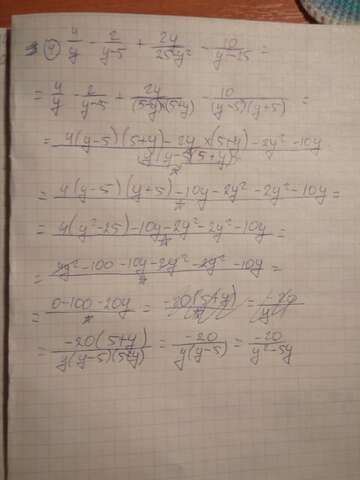 4) 4/y - 2/(y-5) + 2y/(25-y²) - 10/(y²-25) =
= 4/y - 2/(y-5) + 2y/((5-y)(5+y)) - 10/((y-5)(y+5)) =
= (4(y-5)(5+y) - 2y × (5+y) - 2y² - 10y)/(y(y-5)(5+y)) =
= (4(y-5)(y+5) - 10y - 2y² - 2y² - 10y)/* =
= (4(y²-25) - 10y - 2y² - 2y² - 10y)/* =
= (4y² - 100 - 10y - 2y² - 2y² - 10y)/* =
= (0 - 100 - 20y)/* = (-20(5+y))/* = -20/y
= (-20(5+y))/(y(y-5)(5+y)) = -20/(y(y-5)) = -20/(y²-5y)